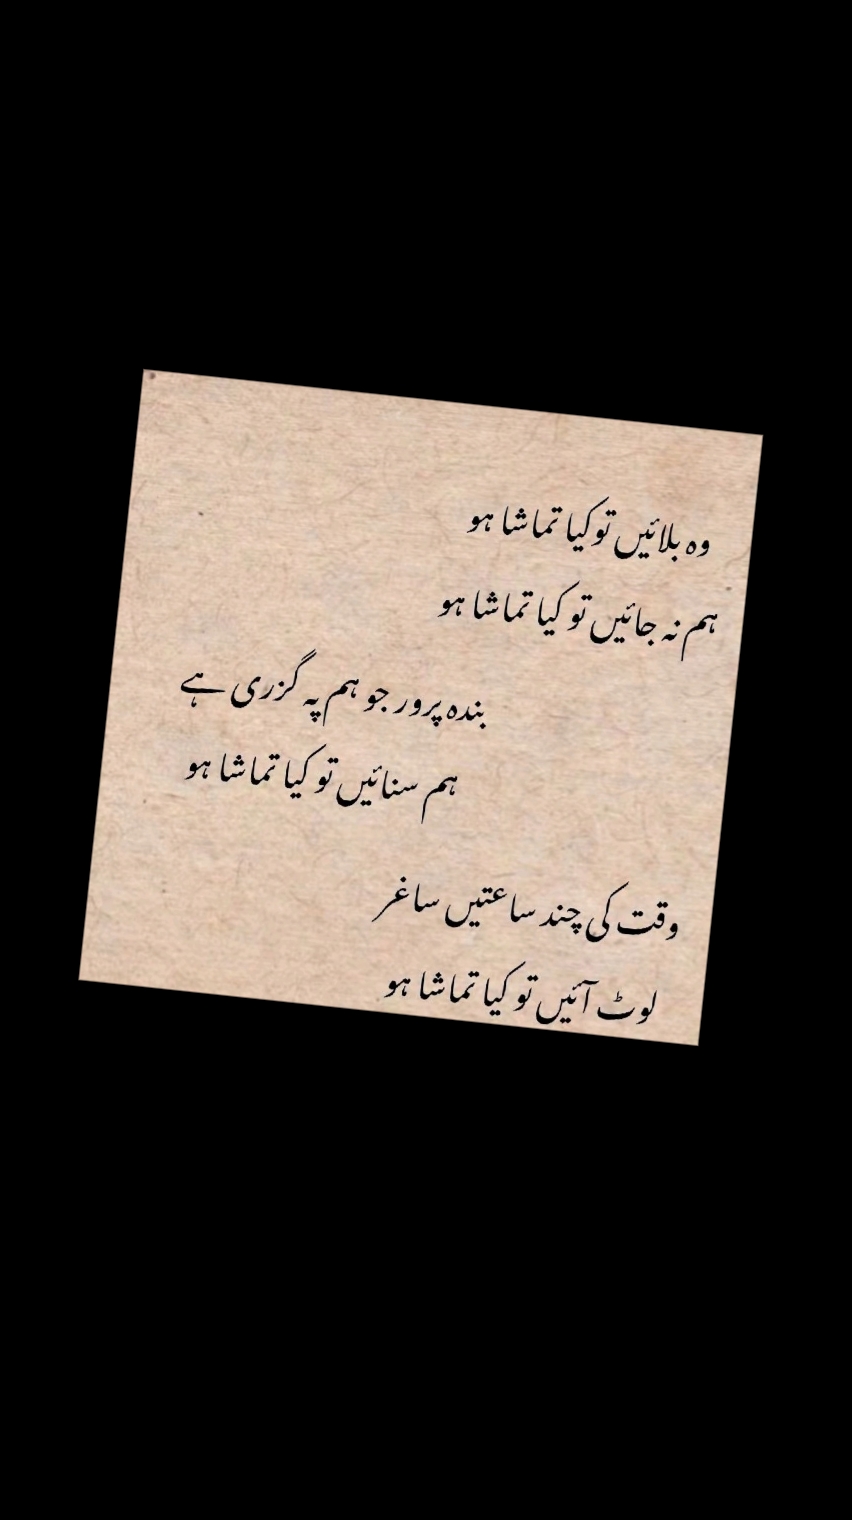 وہ بلائیں تو کیا تماشا ہو
ہم نہ جائیں تو کیا تماشا ہو
بندہ پرور جو ہم پہ گزری ہے
ہم سنائیں تو کیا تماشا ہو
وقت کی چند ساعتیں ساغر
لوٹ آئیں تو کیا تماشا ہو